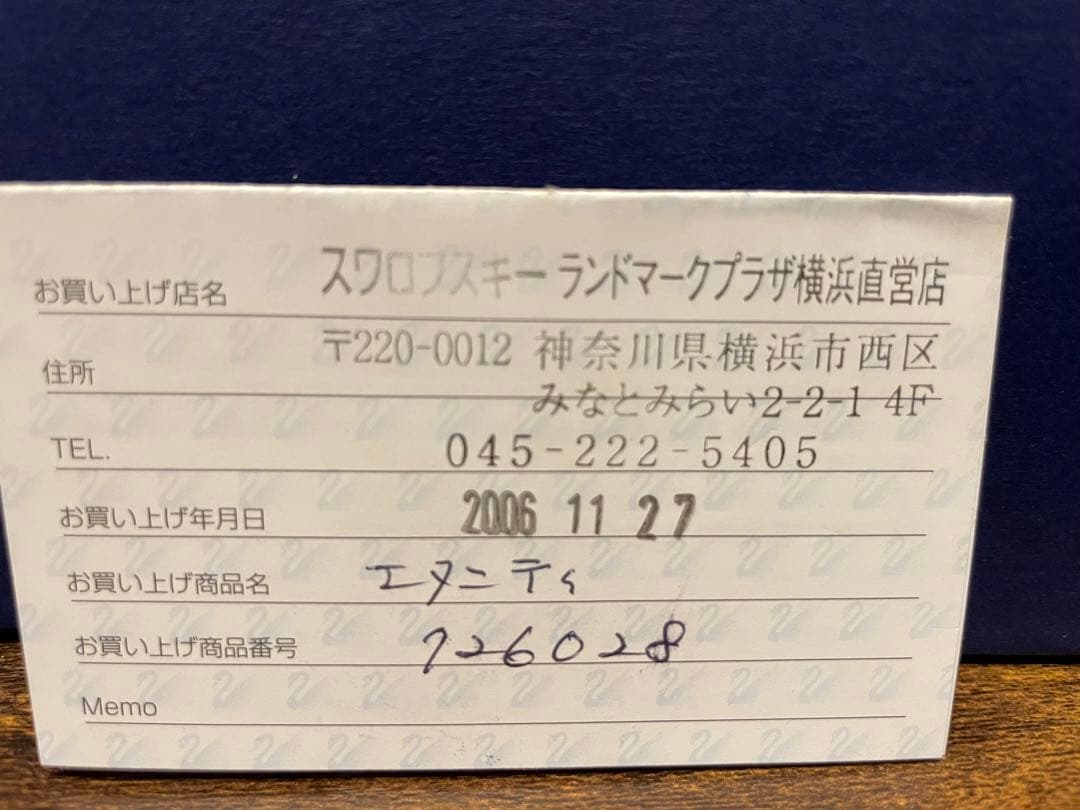 お買い上げ店名 スワロフスキー ランドマークプラザ横浜直営店
住所 〒220-0012 神奈川県横浜市西区
みなとみらい2-2-1 4F
TEL. 045-222-5405
お買い上げ年月日 2006 11 27
お買い上げ商品名 エタニティ
お買い上げ商品番号 726028
Memo